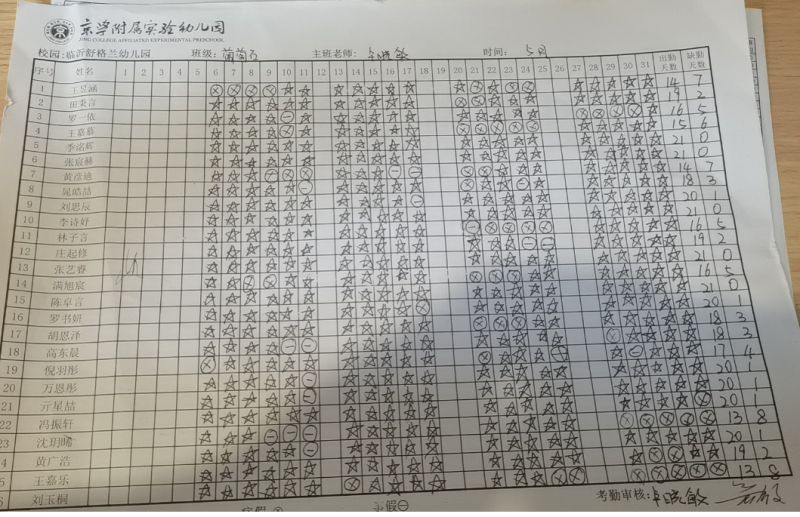 京学附属实验幼儿园
JING COLLEGE AFFILIATED EXPERIMENTAL PRESCHOOL
校园:临沂舒格兰幼儿园 班级: 主班老师: 卓晓敏 时间: 5月
序号 姓名 1 2 3 4 5 6 7 8 9 10 11 12 13 14 15 16 17 18 19 20 21 22 23 24 25 26 27 28 29 30 31 出勤天数 缺勤天数
1 王昱涵 14 7
2 田秉言 19 2
3 罗一依 16 5
4 王嘉慕 15 6
5 季洺辉 21 0
6 张宸赫 21 0
7 黄彦迪 14 7
8 晁皓喆 18 3
9 刘思辰 20 1
10 李诗妤 21 0
11 林子言 16 5
12 庄起修 19 2
13 张艺睿 21 0
14 满旭宸 16 5
15 陈卓言 21 0
16 罗书妍 20 1
17 胡恩泽 18 3
18 高东晨 18 3
19 倪羽彤 17 4
20 万恩彤 20 1
21 亓星喆 20 1
22 冯振轩 20 1
23 沈玥晞 13 8
4 黄广浩 20 1
5 王嘉乐 19 2
6 刘玉桐 13 8
考勤审核: 卓晓敏
病假 ⊗ 事假 ⊖